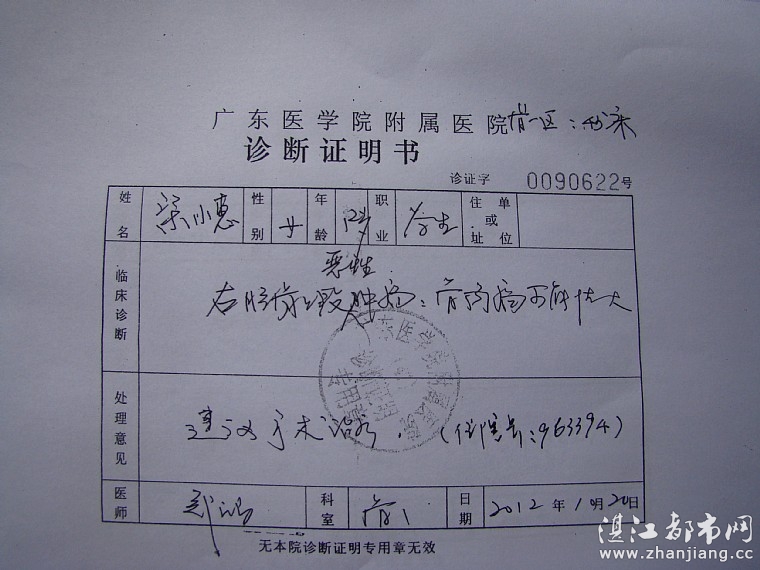 广东医学院附属医院 骨一区:45床
诊断证明书
诊证字 0090622号
姓名 梁小惠 性别 女 年龄 12岁 职业 学生 住址 或 单位
恶性
临床诊断 右胫骨上段肿瘤:骨肉瘤可能性大
处理意见 建议手术治疗。(住院号:963394)
医师 科室 骨1 日期 2012年1月20日
无本院诊断证明专用章无效
湛江都市网
www.zhanjiang.cc